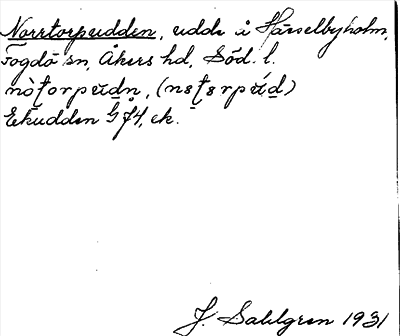 Norrtorpudden, udde å Härselbyholm,
Fogdö sn, Åkers hd, Söd. l.
nòt̲orpŭd̲n, (nɛt̲ɛrpŭ́d̲)
Ekudden G 74, ek.
J. Sahlgren 1931